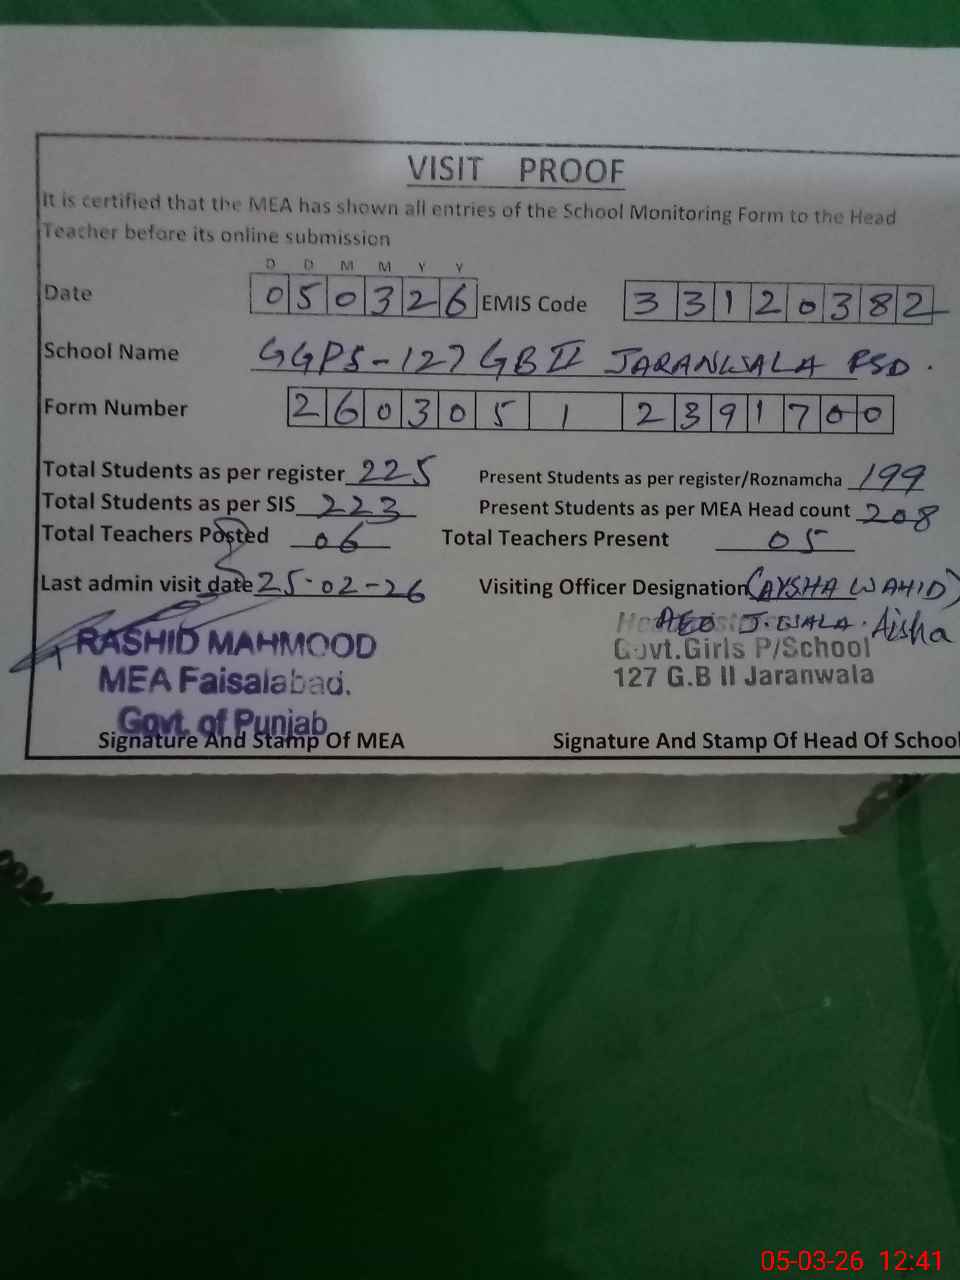 VISIT PROOF
It is certified that the MEA has shown all entries of the School Monitoring Form to the Head
Teacher before its online submission
D D M M Y Y
Date 050326 EMIS Code 33120382
School Name GGPS-127 GB II JARANWALA FSD.
Form Number 260305 1 2391700
Total Students as per register 225 Present Students as per register/Roznamcha 199
Total Students as per SIS 223 Present Students as per MEA Head count 208
Total Teachers Posted 06 Total Teachers Present 05
Last admin visit date 25-02-26 Visiting Officer Designation (AYSHA WAHID)
AEO J.WALA. Aisha
RASHID MAHMOOD Govt.Girls P/School
MEA Faisalabad. 127 G.B II Jaranwala
Govt. of Punjab
Signature And Stamp Of MEA Signature And Stamp Of Head Of School
05-03-26 12:41